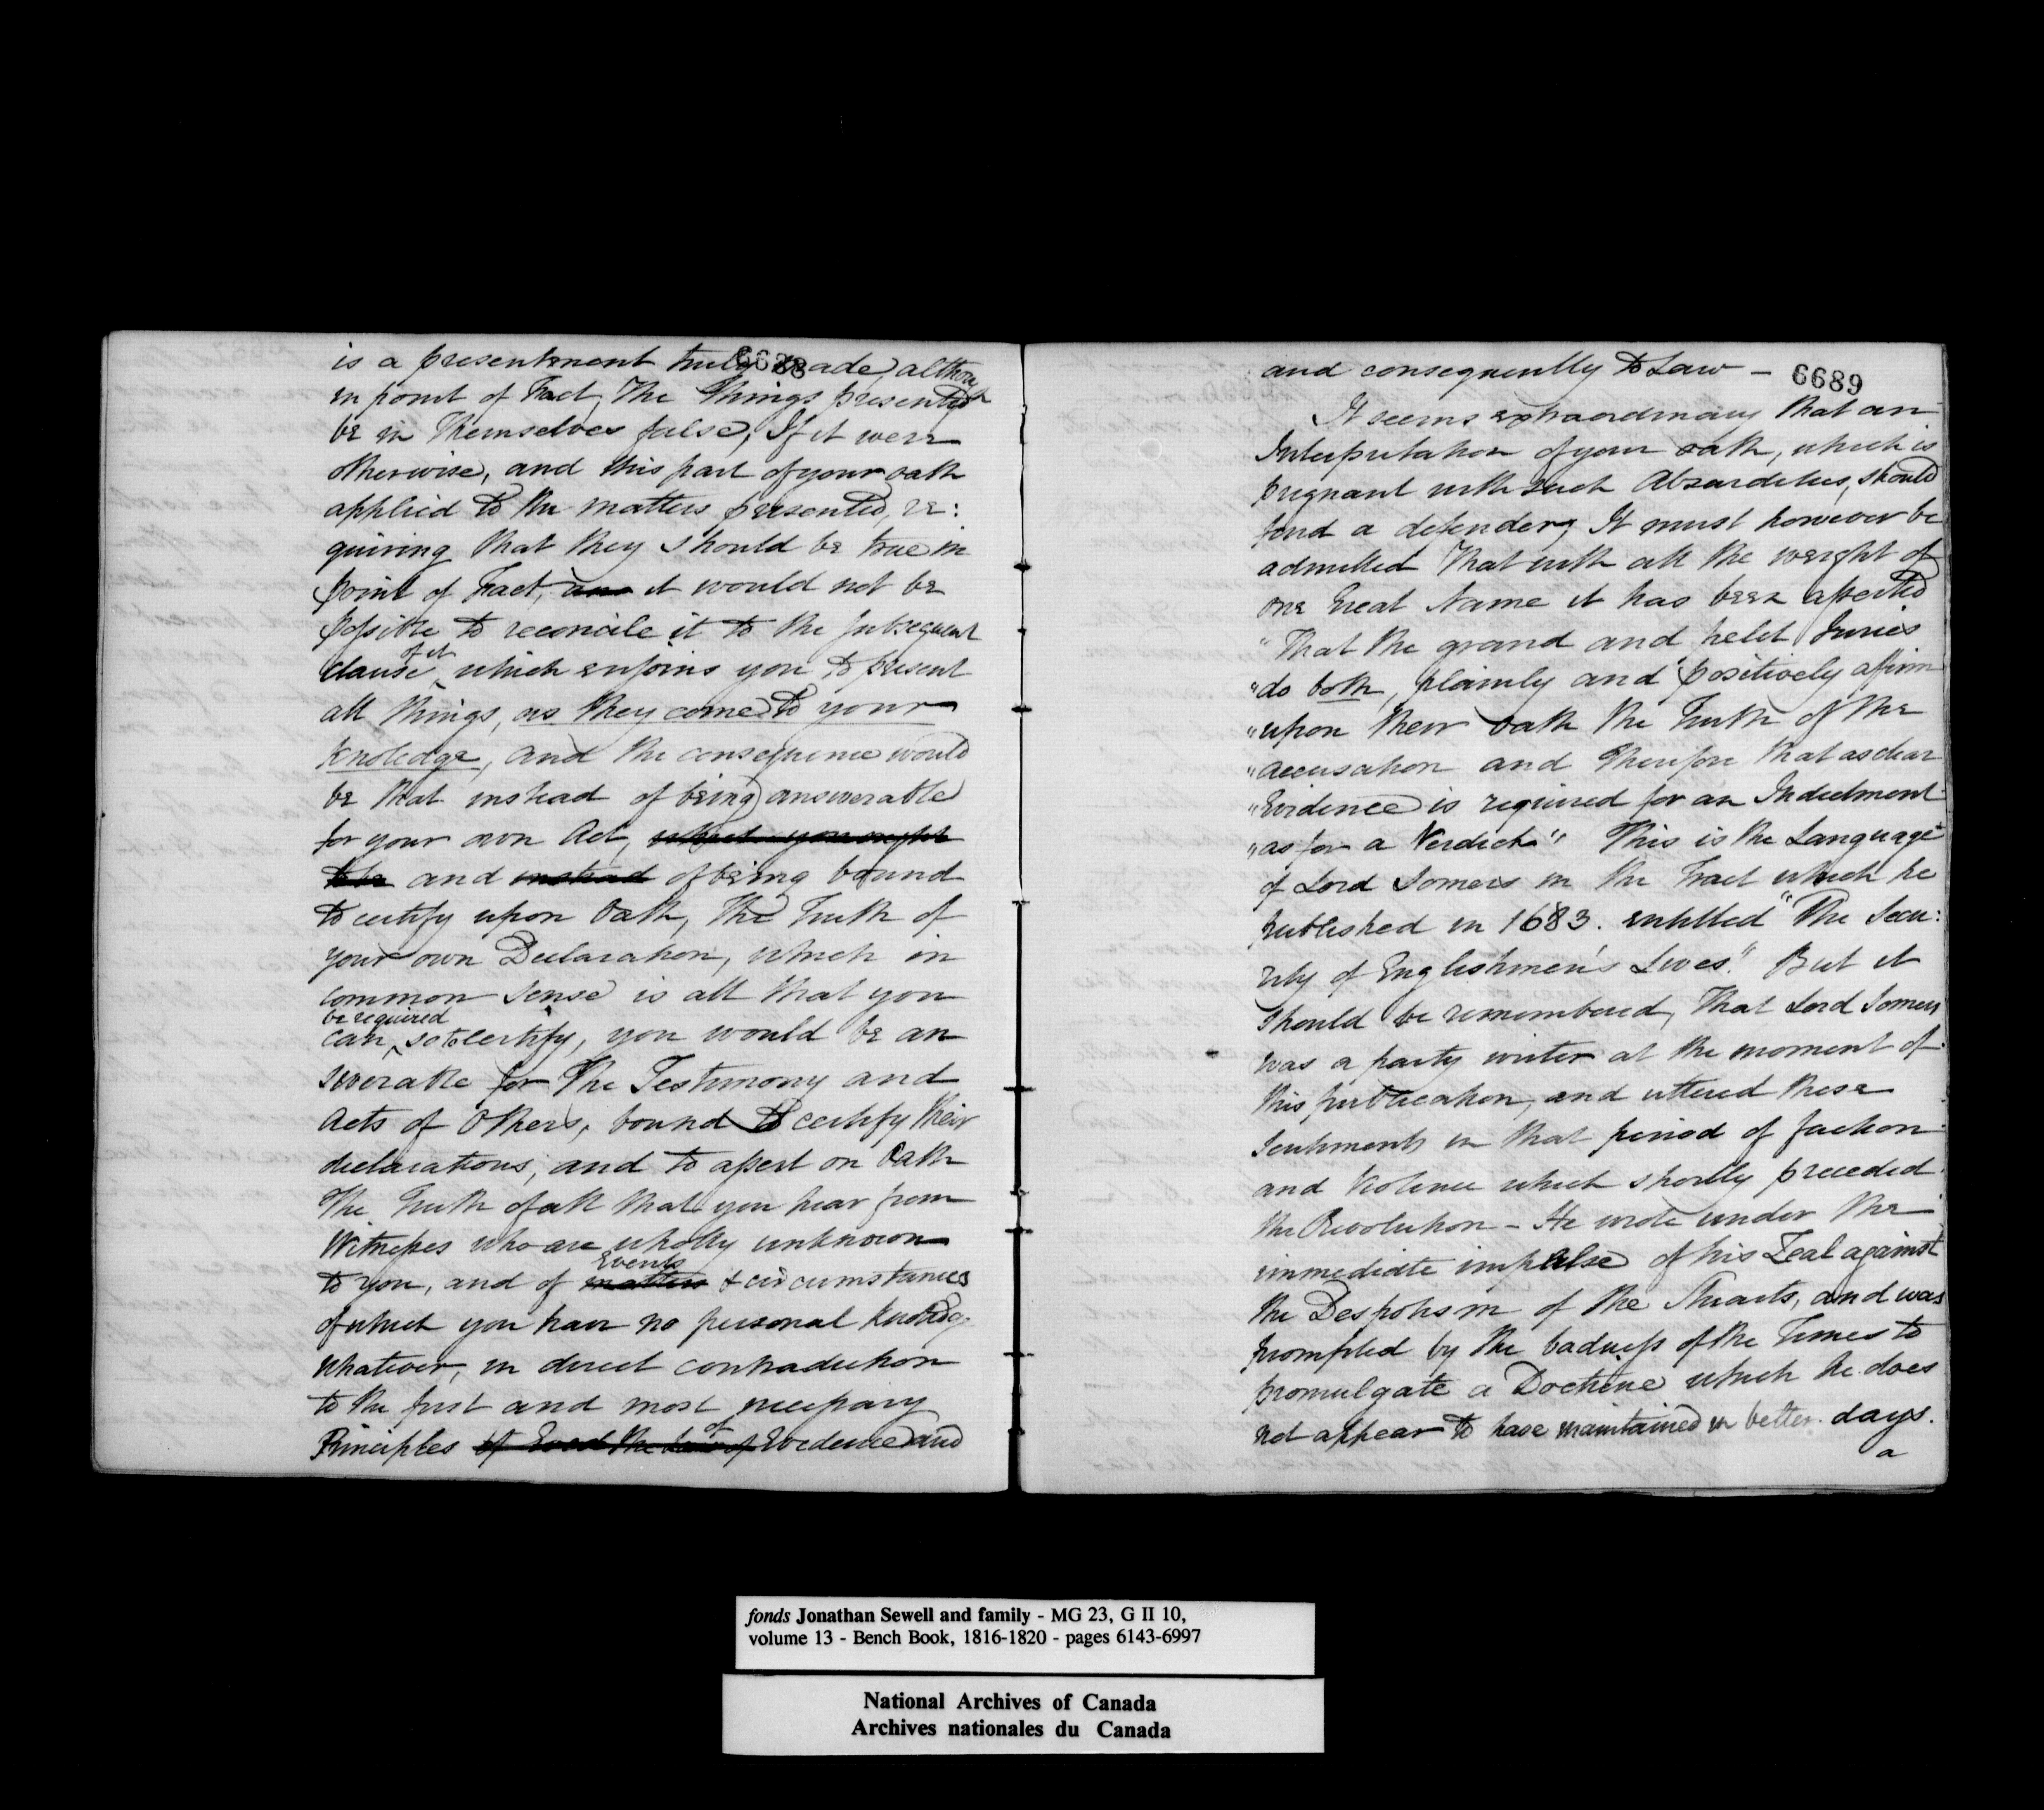 6688
is a presentment truly made, although
in point of Fact, The Things presented
be in Themselves false; If it were
otherwise, and this part of your oath
applied to the matters presented, re:
quiring that they should be true in
point of Fact, it would not be
possible to reconcile it to the subsequent
clause of it, which enjoins you to present
all things, as they come to your
Knoledge, and the consequence would
be that instead of being answerable
for your own Act, which you ought
to be and instead of being bound
to certify upon Oath, The Truth of
your own Declaration, which in
common sense is all that you
can be required so to certify, you would be an
swerable for The Testimony and
Acts of Others, bound to certify their
declarations, and to assert on Oath
The Truth of all that you hear from
Witnesses who are wholly unknown
to you, and of matters Events & circumstances
of which you have no personal Knoledge
whatever, in direct contradiction
to the first and most necessary
Principles of Evidence and
6689
and consequently to Law –
It seems extraordinary that an
Interpretation of your oath, which is
pregnant with such Absurdities, should
find a defender, It must however be
admitted That with all the weight of
one Great Name it has been asserted
"That the grand and petit Juries
"do both, plainly and positively affirm
"upon their oath the Truth of the
"accusation and Therefore that as clear
"Evidence is required for an Indictment
"as for a Verdict" This is the Language
of Lord Somers in the Tract which he
published in 1683. entitled "The Secu:
rity of Englishmen's Lives." But it
should be remembered, That Lord Somers
was a party writer at the moment of
this publication, and uttered these
sentiments in that period of faction
and Violence which shortly preceded
the Revolution – He wrote under the
immediate impulse of his Zeal against
the Despotism of the Stuarts, and was
prompted by the badness of the Times to
promulgate a Doctrine which he does
not appear to have maintained in better days.
a
fonds Jonathan Sewell and family - MG 23, G II 10,
volume 13 - Bench Book, 1816-1820 - pages 6143-6997
National Archives of Canada
Archives nationales du Canada